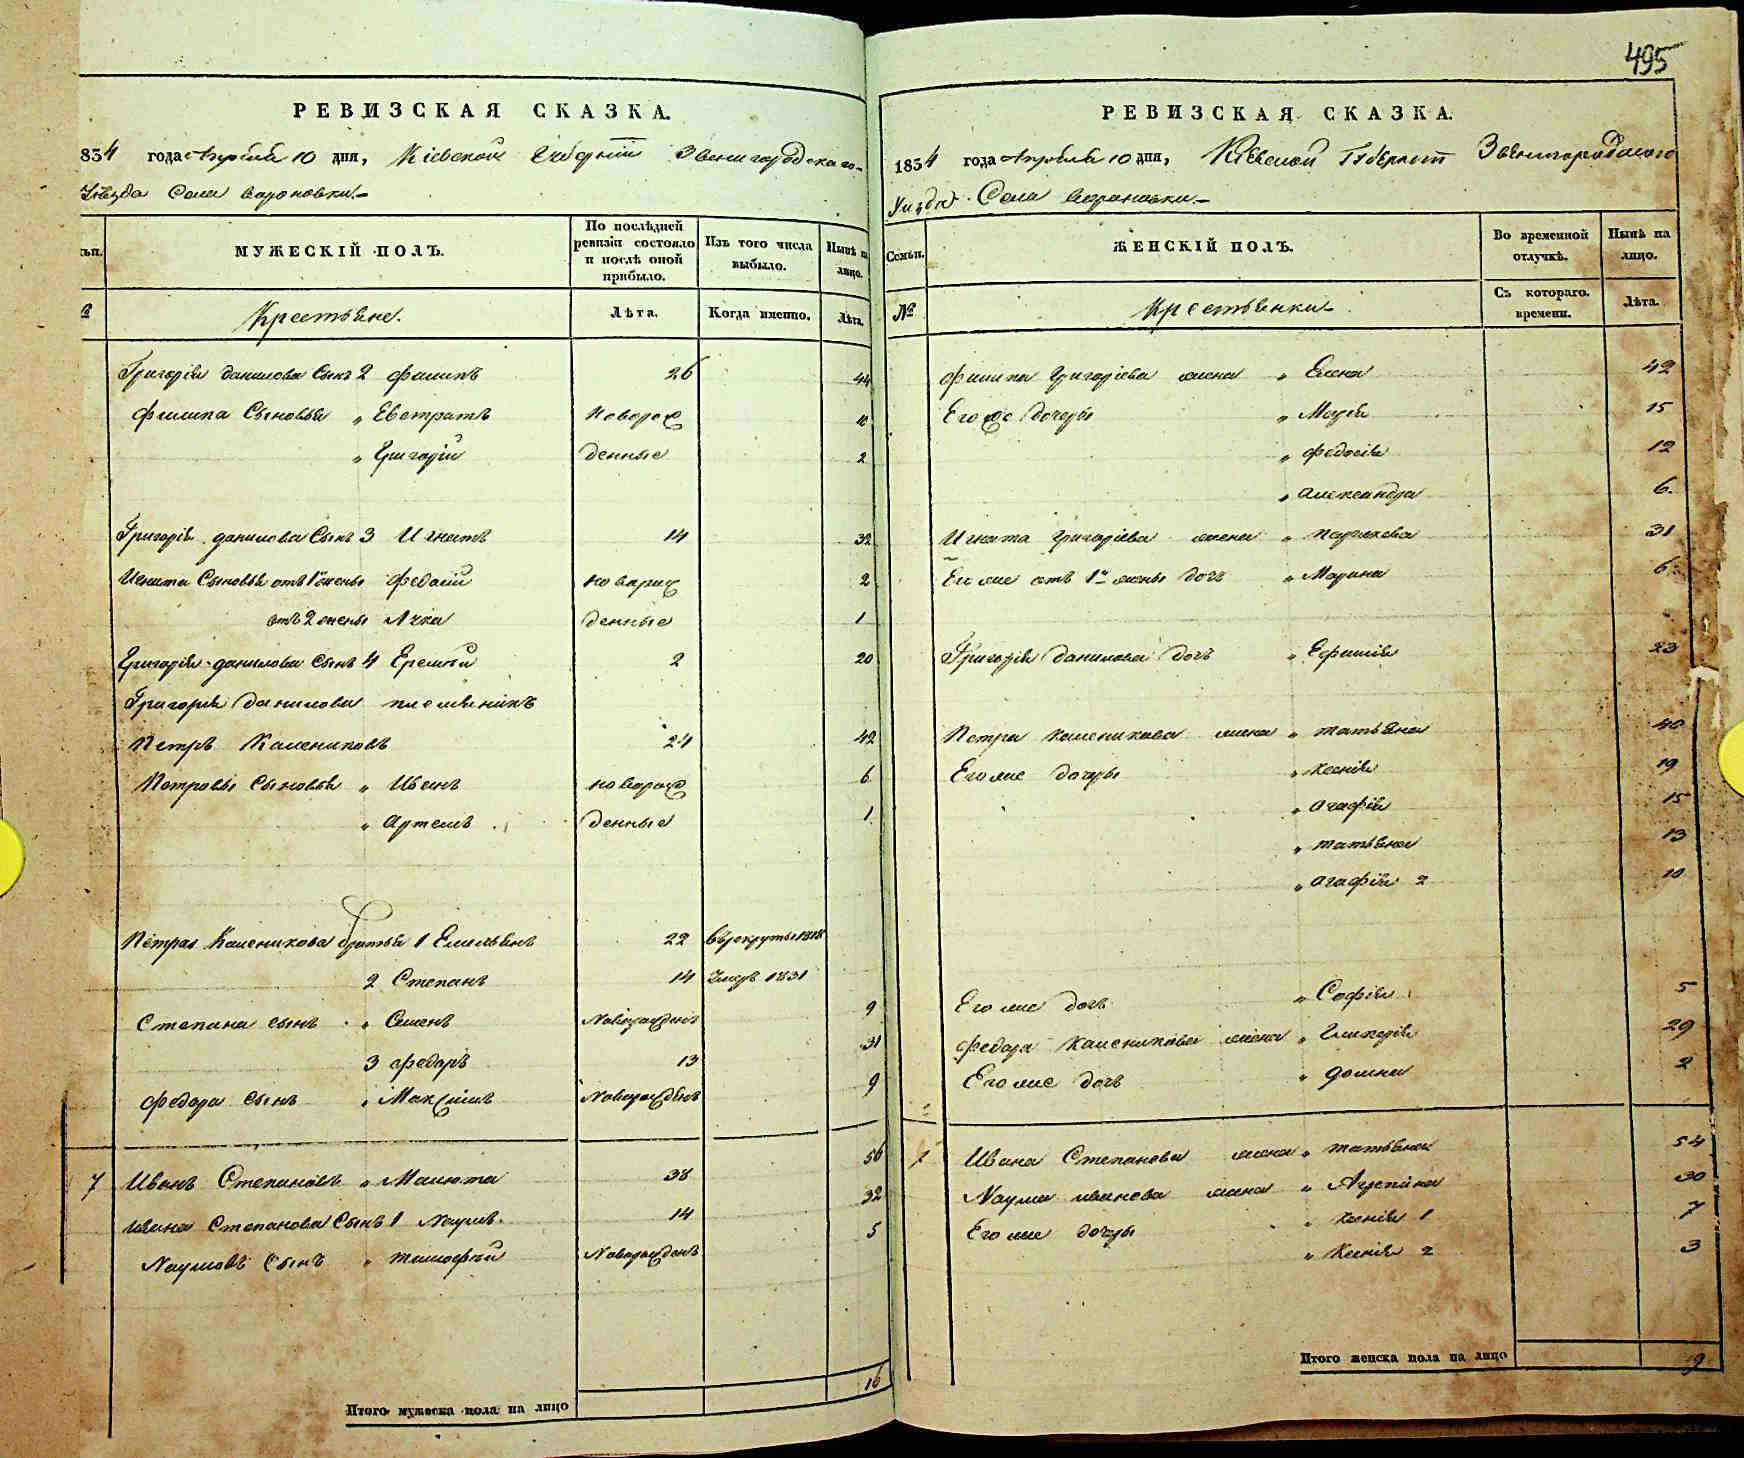 495
РЕВИЗСКАЯ СКАЗКА.
834 года Апреля 10 дня, Кіевской Губерніи Звенигородскаго
Уезда Села Вороновки
ьи.
МУЖЕСКІЙ ПОЛЪ.
По послѣдней ревизіи состояло и послѣ оной прибыло.
Изъ того числа выбыло.
Нынѣ на лицо.
Крестьяне.
Лѣта.
Когда именно.
Лѣта.
Григорія данилова Сынъ 2 филипъ 26 44
филипа Сыновья „ Евстратъ новорож 10
„ Григорій денные 2
Григорія данилова Сынъ 3 Игнатъ 14 32
Игната Сыновья отъ 1 жены федосій новорож 2
отъ 2 жены Лука денные 1
Григорія данилова сынъ 4 Еремѣй 2 20
Григорія данилова племяникъ
Петръ Калениковъ 24 42
Петровы Сыновья „ Иванъ новорож 6
„ Артемъ денные 1
Петра Каленикова братья 1 Емельянъ 22 Въ рекруты 1818
2 Степанъ 14 Умеръ 1831
Степана сынъ „ Семенъ Новорожденъ 9
3 федоръ 13 31
федора Сынъ „ Максимъ Новорожденъ 9
7 Иванъ Степановъ „ Малюта 38 56
Ивана Степанова Сынъ 1 Наумъ 14 32
Наумовъ Сынъ „ тимофѣй Новорожденъ 5
Итого мужеска пола на лицо 16
РЕВИЗСКАЯ СКАЗКА.
1834 года Апреля 10 дня, Кіевской Губерніи Звенигородскаго
Уезда Села Вороновки
Семьи.
ЖЕНСКІЙ ПОЛЪ.
Во временной отлучкѣ.
Нынѣ на лицо.
№
Крестьянки
Съ котораго. времени.
Лѣта.
филипа Григоріева жена „ Елена 42
Его же дочеры „ Марія 15
„ федосія 12
„ александра 6.
Игната Григоріева жена „ Параскева 31
Его же отъ 1й жены дочь „ Марина 6
Григорія данилова дочь „ Ефимія 23
Петра Каленикова жена „ татьяна 40
Его же дочеры „ Ксенія 19
„ агафія 15
„ татьяна 13
„ агафія 2 10
Его же дочь „ Софія 5
федора Каленикова жена „ Гликерія 29
Его же дочь „ домна 2
7 Ивана Степанова жена „ татьяна 54
Наума иванова жена „ Агрепина 30
Его же дочеры „ Ксенія 1 7
„ Ксенія 2 3
Итого женска пола на лицо 19